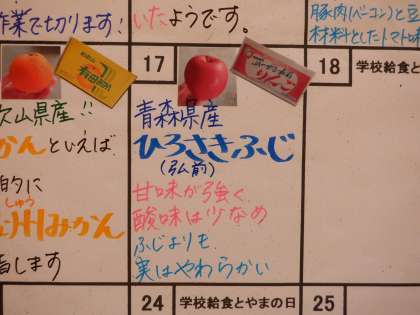 作業で切ります!
いたようです。
豚肉(ベーコン)と豆
材料としたトマト味
17
18
学校給食と
有田
りんご
山県産!!
かんといえば
的に
しゅう
州みかん
指します
青森県産
ひろさきふじ
(弘前)
甘味が強く
酸味は少なめ
ふじよりも
実はやわらかい
24
学校給食とやまの日
25